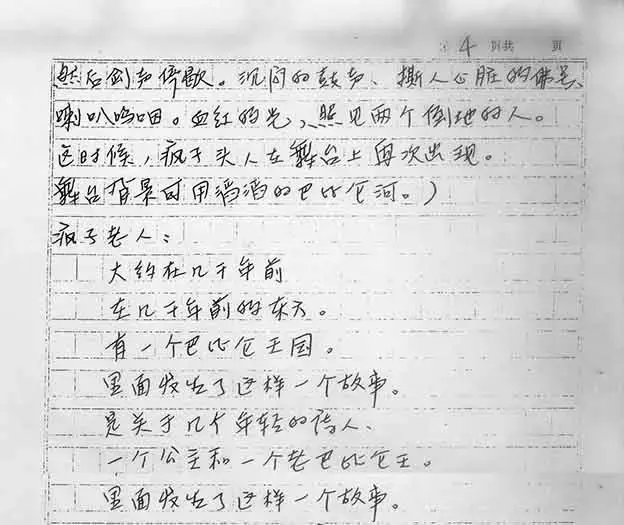 第 4 页共 页
然后剑声停歇。沉闷的鼓声、撕人心脏的佛号、
喇叭呜咽。血红的光,照见两个倒地的人。
这时候,疯子头人在舞台上再次出现。
舞台背景可用滔滔的巴比仑河。)
疯子老人:
大约在几千年前
在几千年前的东方。
有一个巴比仑王国。
里面发生了这样一个故事。
是关于几个年轻的诗人、
一个公主和一个老巴比仑王。
里面发生了这样一个故事。